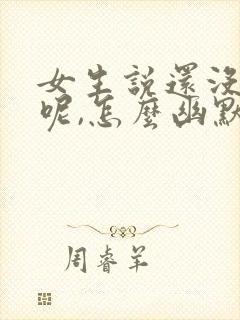 女生說還沒
呢,怎麼幽默
周睿羊